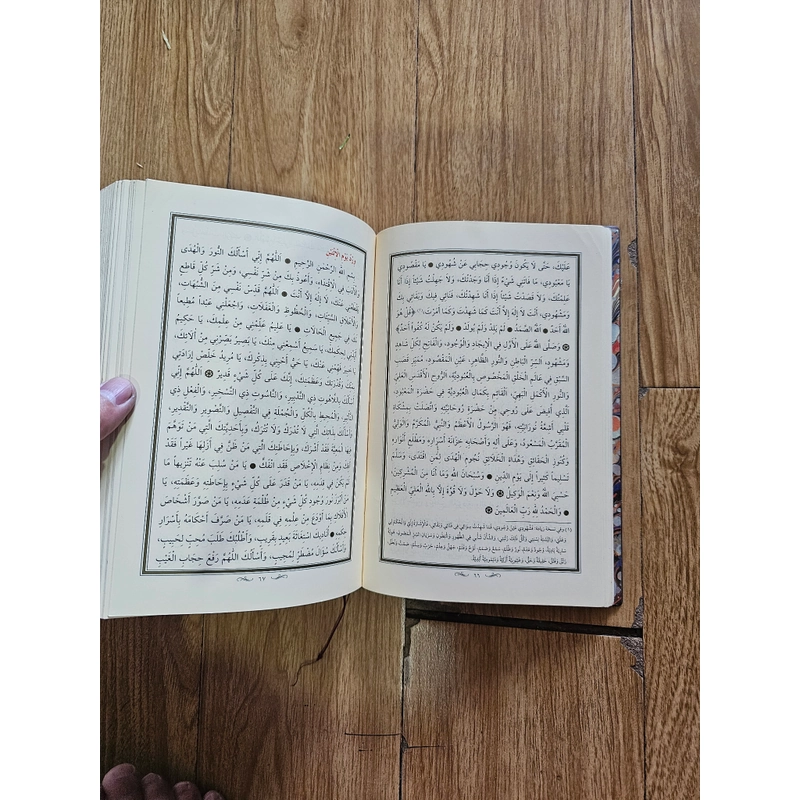 عَلَيْكَ، حَتَّى لَا يَكُونَ وُجُودِي حِجَابِي عَنْ شُهُودِي ۞ يَا مَقْصُودِي
يَا مَعْبُودِي، مَا فَاتَنِي شَيْءٌ إِذَا أَنَا وَجَدْتُكَ، وَلَا جَهِلْتُ شَيْئًا إِذَا أَنَا
عَلِمْتُكَ، وَلَا فَقَدْتُ شَيْئًا إِذَا أَنَا شَهِدْتُكَ، فَنَائِي فِيكَ وَبَقَائِي بِكَ
وَمَشْهُودِي، أَنْتَ لَا إِلٰهَ إِلَّا أَنْتَ كَمَا شَهِدْتَ وَكَمَا أَمَرْتَ(١) ﴿قُلْ هُوَ
اللهُ أَحَدٌ ۞ اللهُ الصَّمَدُ ۞ لَمْ يَلِدْ وَلَمْ يُولَدْ ۞ وَلَمْ يَكُنْ لَهُ كُفُوًا أَحَدٌ﴾
۞ وَصَلَّى اللهُ عَلَى الْأَوَّلِ فِي الْإِيجَادِ وَالْوُجُودِ، وَالْفَاتِحِ لِكُلِّ شَاهِدٍ
وَمَشْهُودٍ، السِّرِّ الْبَاطِنِ وَالنُّورِ الظَّاهِرِ، عَيْنِ الْمَقْصُودِ، مُمَيَّزِ قَصَبِ
السَّبْقِ فِي عَالَمِ الْخَلْقِ الْمَخْصُوصِ بِالْعُبُودِيَّةِ، الرُّوحِ الْأَقْدَسِ الْعَلِيِّ
وَالنُّورِ الْأَكْمَلِ الْبَهِيِّ، الْقَائِمِ بِكَمَالِ الْعُبُودِيَّةِ فِي حَضْرَةِ الْمَعْبُودِ،
الَّذِي أُفِيضَ عَلَى رُوحِي مِنْ حَضْرَةِ رُوحَانِيَّتِهِ، وَاتَّصَلَتْ بِمِشْكَاةِ
قَلْبِي أَشِعَّةُ نُورَانِيَّتِهِ، فَهُوَ الرَّسُولُ الْأَعْظَمُ وَالنَّبِيُّ الْمُكَرَّمُ وَالْوَلِيُّ
الْمُقَرَّبُ الْمَسْعُودُ، وَعَلَى آلِهِ وَأَصْحَابِهِ خَزَائِنِ أَسْرَارِهِ وَمَطَالِعِ أَنْوَارِهِ
وَكُنُوزِ الْحَقَائِقِ وَهُدَاةِ الْخَلَائِقِ نُجُومِ الْهُدَى لِمَنِ اقْتَدَى، وَسَلَّمَ
تَسْلِيمًا كَثِيرًا إِلَى يَوْمِ الدِّينِ ۞ وَسُبْحَانَ اللهِ وَمَا أَنَا مِنَ الْمُشْرِكِينَ،
حَسْبِيَ اللهُ وَنِعْمَ الْوَكِيلُ ۞ وَلَا حَوْلَ وَلَا قُوَّةَ إِلَّا بِاللهِ الْعَلِيِّ الْعَظِيمِ
۞ وَالْحَمْدُ لِلهِ رَبِّ الْعَالَمِينَ ۞
٦٦
وِرْدُ يَوْمِ الْإِثْنَيْنِ
بِسْمِ اللهِ الرَّحْمٰنِ الرَّحِيمِ ۞ اللَّهُمَّ إِنِّي أَسْأَلُكَ النُّورَ وَالْهُدَى
وَالْأَدَبَ فِي الِاقْتِدَاءِ، وَأَعُوذُ بِكَ مِنْ شَرِّ نَفْسِي، وَمِنْ شَرِّ كُلِّ قَاطِعٍ
يَقْطَعُنِي عَنْكَ، لَا إِلٰهَ إِلَّا أَنْتَ ۞ اللَّهُمَّ قَدِّسْ نَفْسِي مِنَ الشُّبُهَاتِ
وَالْأَخْلَاقِ السَّيِّئَاتِ، وَالْحُظُوظِ وَالْغَفَلَاتِ، وَاجْعَلْنِي عَبْدًا مُطِيعًا
لَكَ فِي جَمِيعِ الْحَالَاتِ ۞ يَا عَلِيمُ عَلِّمْنِي مِنْ عِلْمِكَ، يَا حَكِيمُ
أَيِّدْنِي بِحُكْمِكَ، يَا سَمِيعُ أَسْمِعْنِي مِنْكَ، يَا بَصِيرُ بَصِّرْنِي فِي آلَائِكَ،
يَا خَبِيرُ فَهِّمْنِي عَنْكَ، يَا حَيُّ أَحْيِنِي بِذِكْرِكَ، يَا مُرِيدُ خَلِّصْ إِرَادَتِي
بِمَنِّكَ وَقُدْرَتِكَ وَعَظَمَتِكَ، إِنَّكَ عَلَى كُلِّ شَيْءٍ قَدِيرٌ ۞ اللَّهُمَّ إِنِّي
أَسْأَلُكَ بِاللَّاهُوتِ ذِي التَّدْبِيرِ، وَالنَّاسُوتِ ذِي التَّسْخِيرِ، وَالْعَقْلِ ذِي
التَّأْثِيرِ، الْمُحِيطِ بِالْكُلِّ وَالْجُمْلَةِ فِي التَّفْصِيلِ وَالتَّصْوِيرِ وَالتَّقْدِيرِ،
وَأَسْأَلُكَ بِذَاتِكَ الَّتِي لَا تُدْرَكُ وَلَا تُتْرَكُ، وَبِأَحَدِيَّتِكَ الَّتِي مَنْ تَوَهَّمَ
بِهَا الْمَعِيَّةَ فَقَدْ أَشْرَكَ، وَبِإِحَاطَتِكَ الَّتِي مَنْ ظَنَّ فِي أَزَلِهَا غَيْرًا فَقَدْ
أَفِكَ وَمِنْ نِظَامِ الْإِخْلَاصِ فَقَدِ انْفَكَّ ۞ يَا مَنْ سُلِبَ عَنْهُ تَنْزِيهًا مَا
لَمْ يَكُنْ فِي قِدَمِهِ، يَا مَنْ قَدَرَ عَلَى كُلِّ شَيْءٍ بِإِحَاطَتِهِ وَعَظَمَتِهِ، يَا
مَنْ أَبْرَزَ نُورَ وُجُودِ كُلِّ شَيْءٍ مِنْ ظُلْمَةِ عَدَمِهِ، يَا مَنْ صَوَّرَ أَشْخَاصَ
الْأَفْلَاكِ بِمَا أَوْدَعَ مِنْ عِلْمِهِ فِي قَلَمِهِ، يَا مَنْ صَرَّفَ أَحْكَامَهُ بِأَسْرَارِ
حِكَمِهِ ۞ أُنَادِيكَ اسْتِغَاثَةَ بَعِيدٍ بِقَرِيبٍ، وَأَطْلُبُكَ طَلَبَ مُحِبٍّ لِحَبِيبٍ،
وَأَسْأَلُكَ سُؤَالَ مُضْطَرٍّ لِمُجِيبٍ، وَأَسْأَلُكَ اللَّهُمَّ رَفْعَ حِجَابِ الْغَيْبِ
٦٧